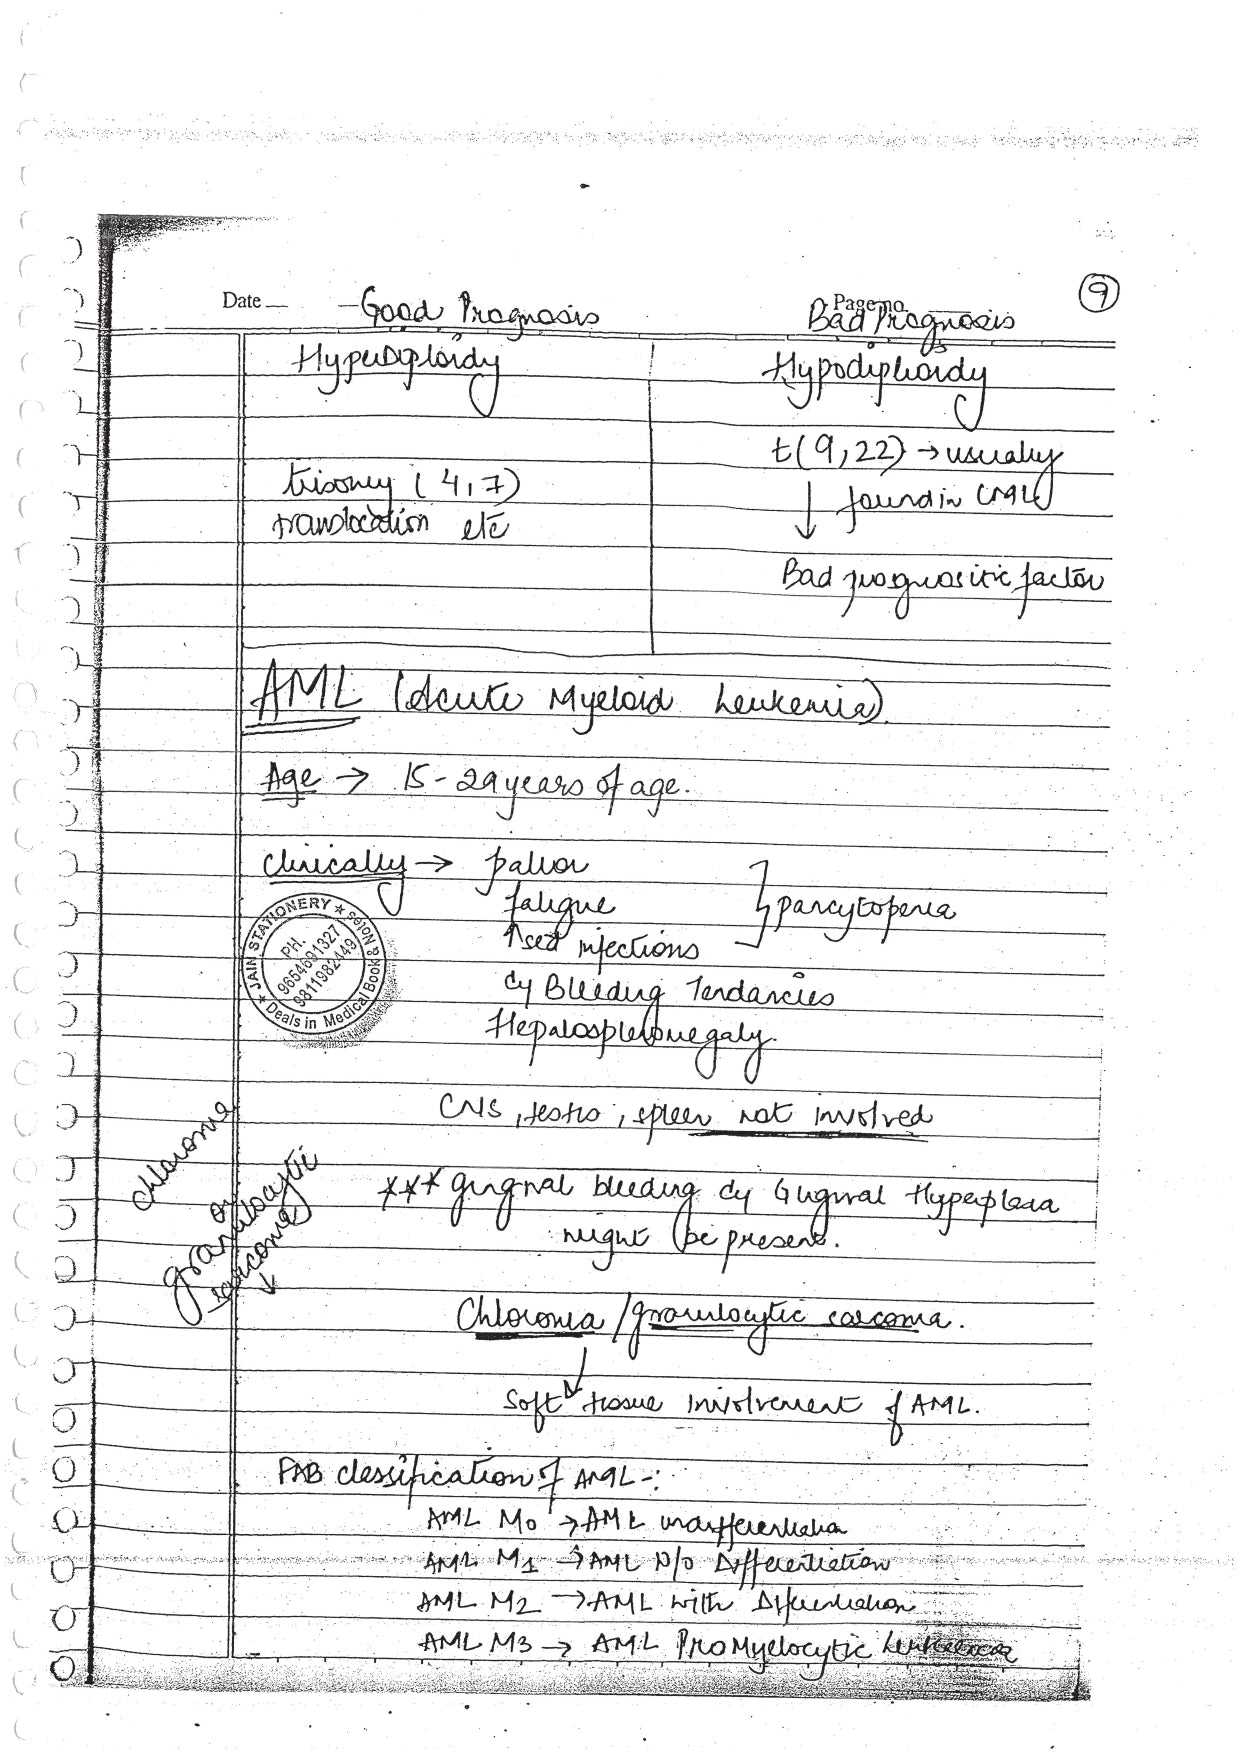 9
Date
Page no.
Good Prognosis
Bad Prognosis
Hyperdiploidy
Hypodiploidy
trisomy (4,7)
translocation etc
t(9,22) → usually
found in CML
↓
Bad prognositic factor
AML (Acute Myeloid Leukemia)
Age → 15-29 years of age.
Clinically → pallor
fatigue
↑sed infections
} pancytopenia
c̄ Bleeding Tendancies
Hepatosplenomegaly.
★ JAIN STATIONERY ★
PH.
9654691327
9811982449
Deals in Medical Book & Notes
CNS, testis, spleen not involved
chloroma
or
granulocytic
sarcoma
↓
*** gingival bleeding c̄ Gingival Hyperplasia
might be present.
Chloroma / granulocytic sarcoma.
↓
Soft tissue involvement of AML.
FAB classification of AML -:
AML M0 → AML undifferentiation
AML M1 → AML N/o Differentiation
AML M2 → AML with Differentiation
AML M3 → AML ProMyelocytic Leukemia